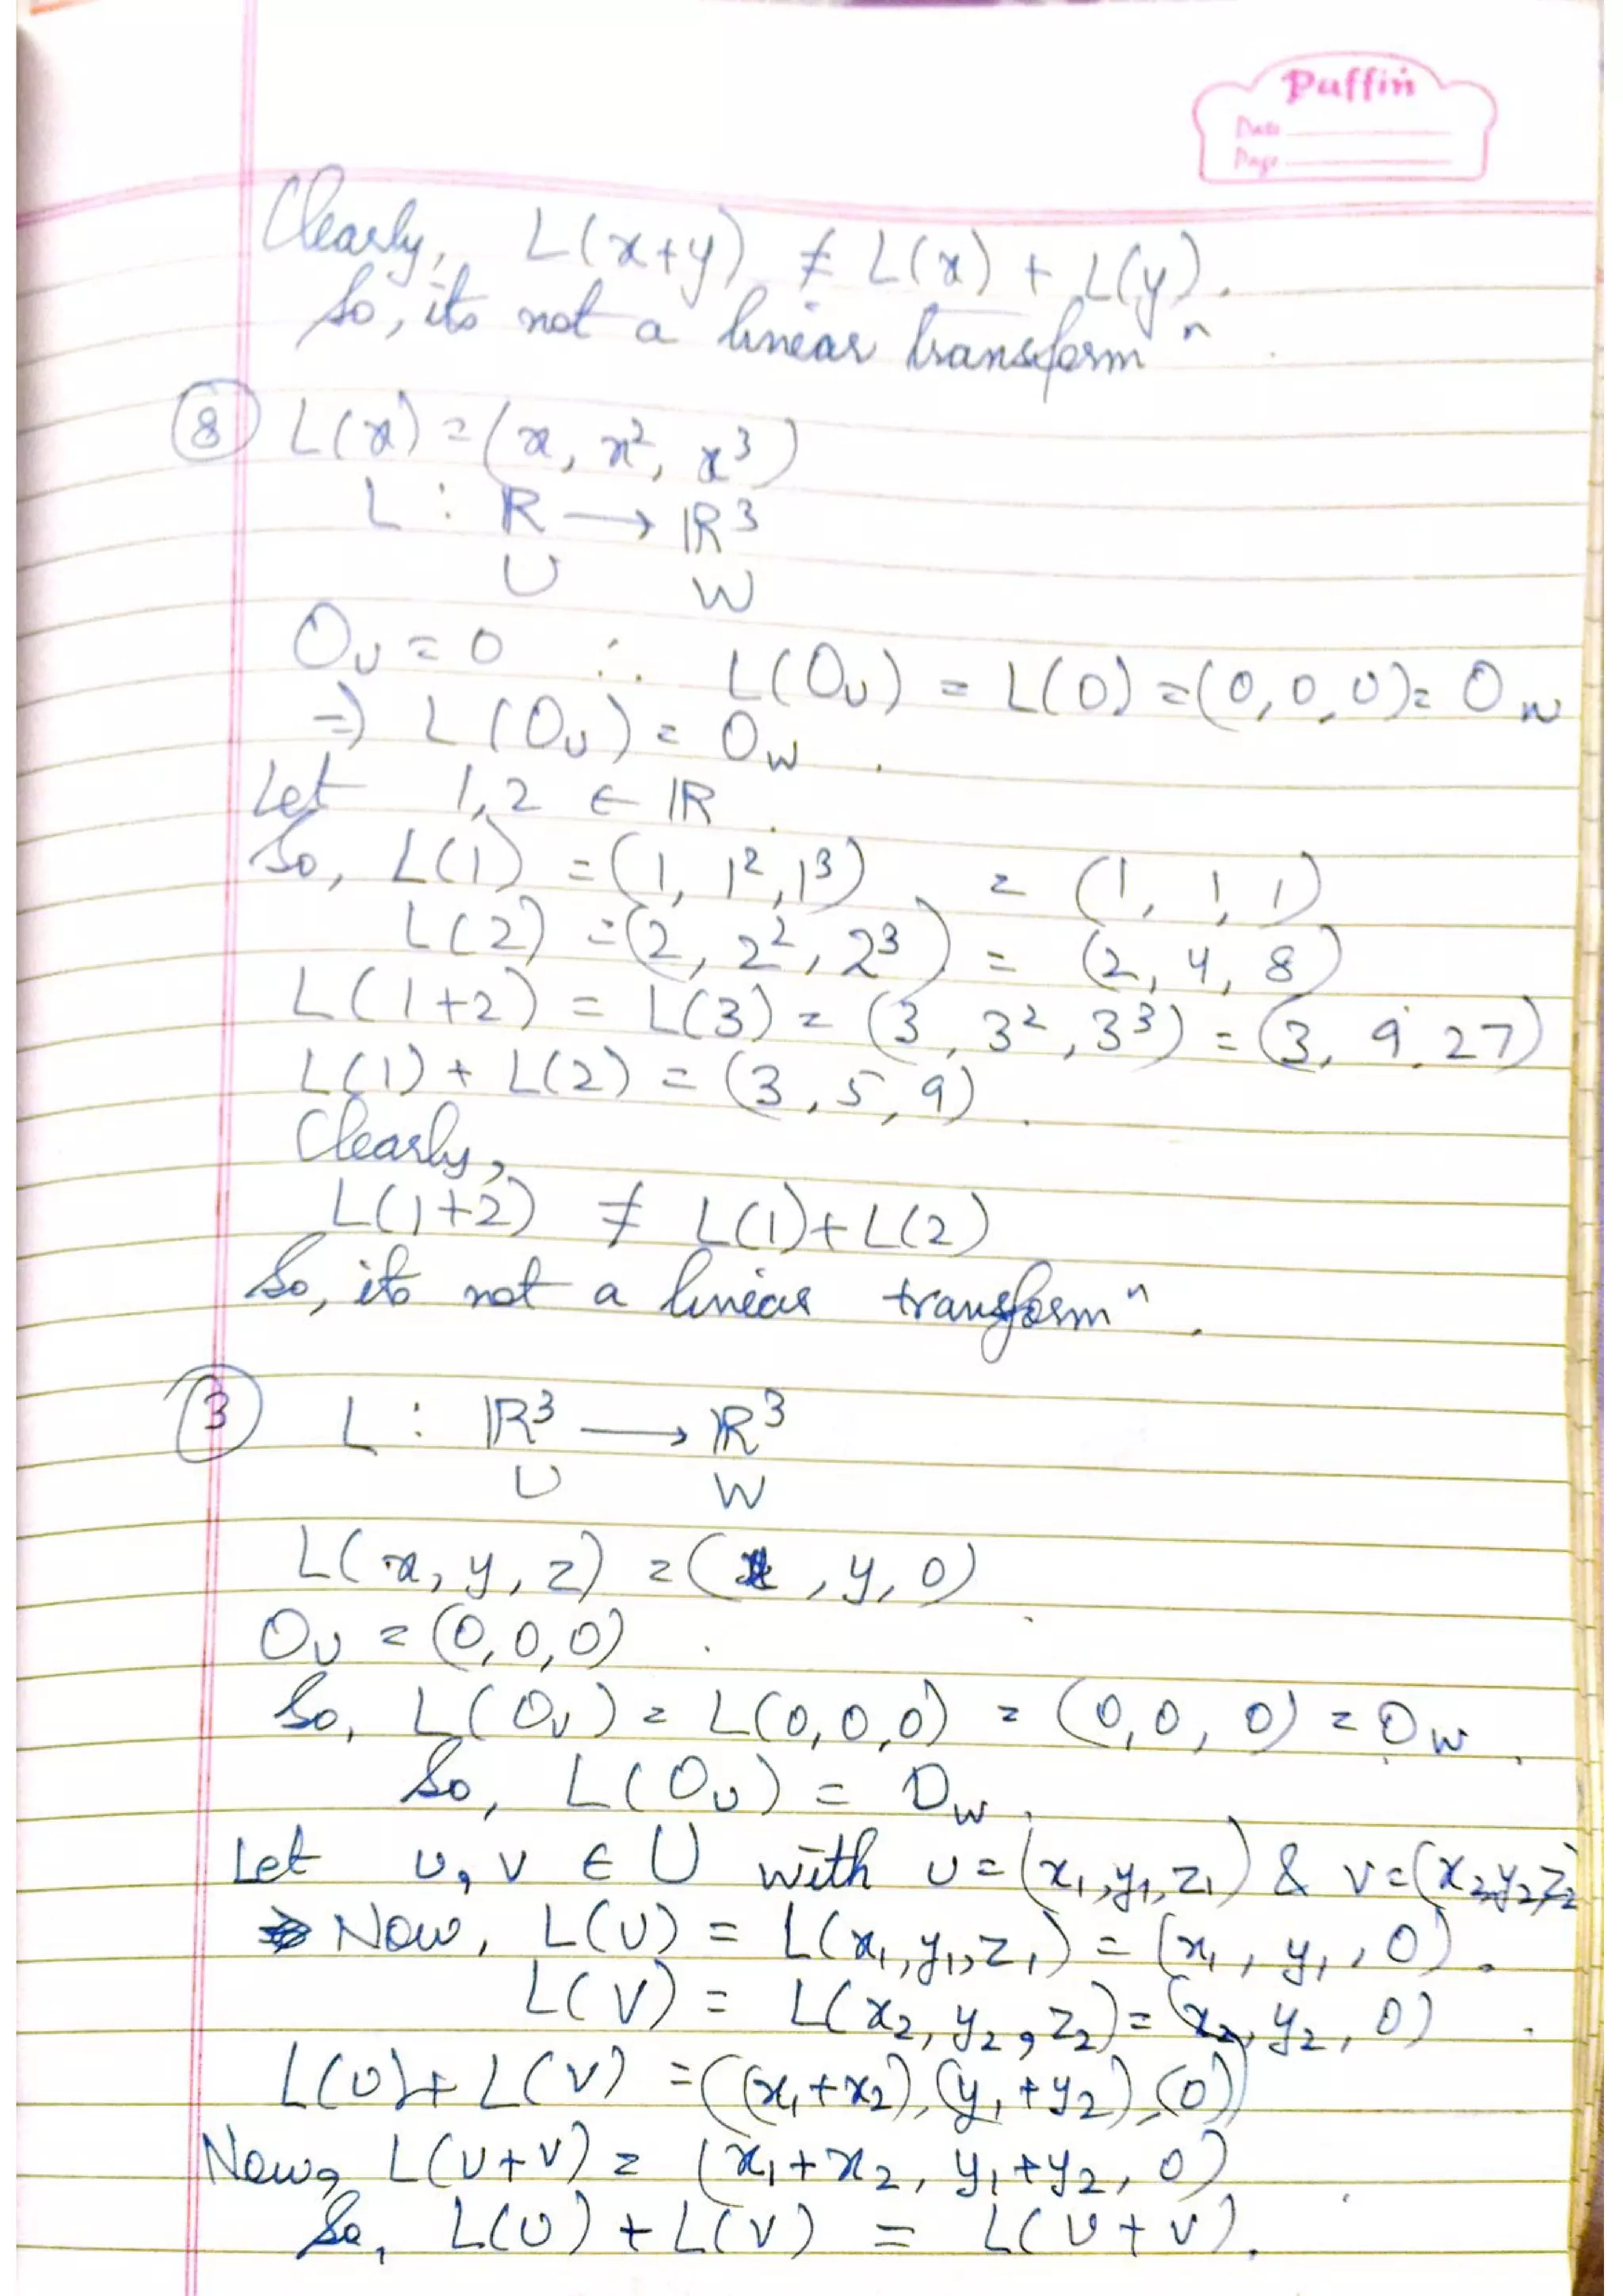 Puffin
Date
Page
Clearly, L(x+y) ≠ L(x) + L(y).
So, its not a linear transformⁿ.
⑧ L(x) = (x, x², x³)
L : ℝ → ℝ³
U W
O_U = 0 ∴ L(O_U) = L(0) = (0, 0, 0) = O_W
⇒ L(O_U) = O_W.
Let 1, 2 ∈ ℝ.
So, L(1) = (1, 1², 1³) = (1, 1, 1)
L(2) = (2, 2², 2³) = (2, 4, 8)
L(1+2) = L(3) = (3, 3², 3³) = (3, 9, 27)
L(1) + L(2) = (3, 5, 9).
Clearly,
L(1+2) ≠ L(1) + L(2)
So, its not a linear transformⁿ.
③ L : ℝ³ → ℝ³
U W
L(x, y, z) = (x, y, 0).
O_U = (0, 0, 0).
So, L(O_U) = L(0, 0, 0) = (0, 0, 0) = O_W.
So, L(O_U) = O_W.
Let u, v ∈ U with u = (x₁, y₁, z₁) & v = (x₂, y₂, z₂
Now, L(u) = L(x₁, y₁, z₁) = (x₁, y₁, 0).
L(v) = L(x₂, y₂, z₂) = (x₂, y₂, 0).
L(u) + L(v) = ((x₁+x₂), (y₁+y₂), (0))
Now, L(u+v) = (x₁+x₂, y₁+y₂, 0)
So, L(u) + L(v) = L(u+v).